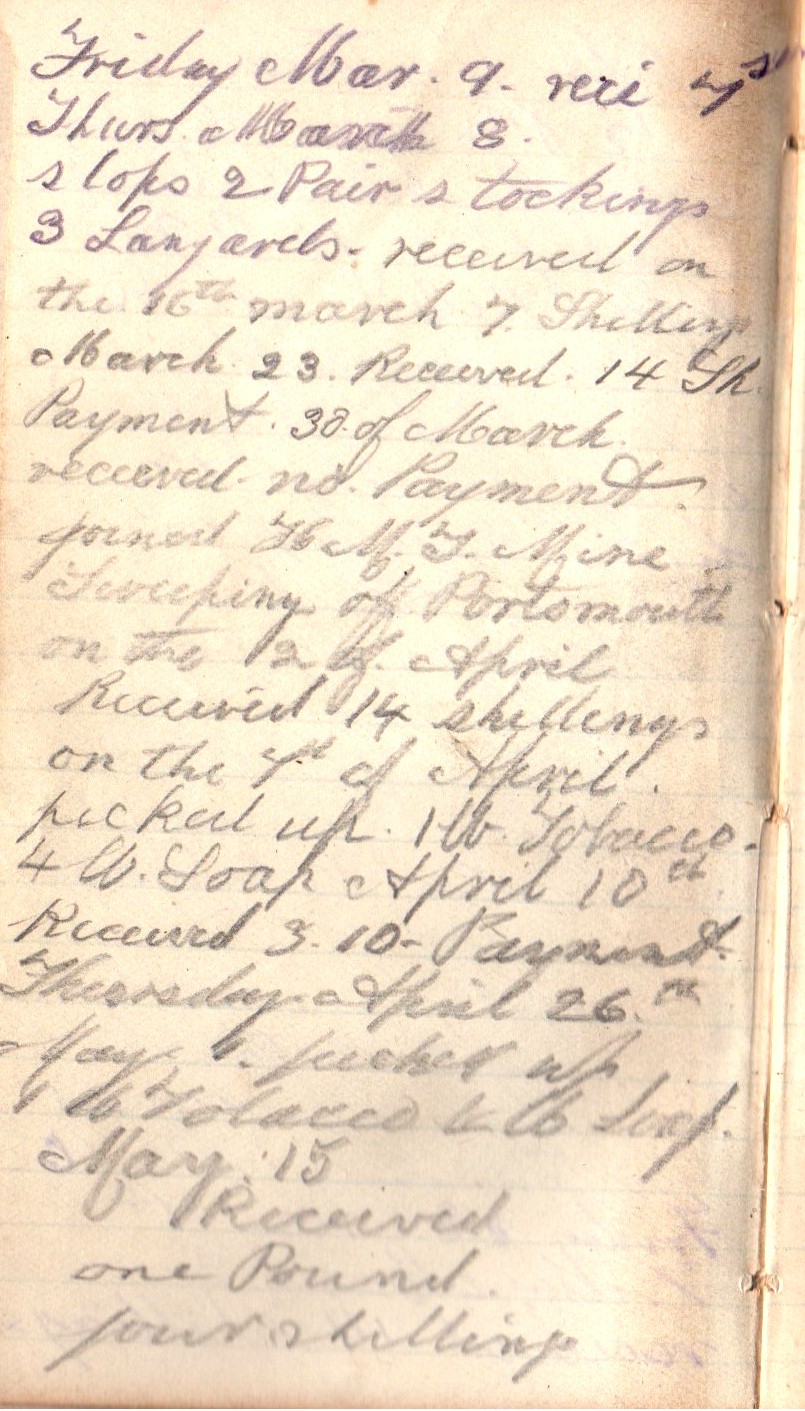 Friday Mar. 9. reci 7 sh
Thurs. March 8.
slops 2 Pair stockings
3 Lanyards. received on
the 16th march 7. Shillings
March 23. Received. 14 Sh.
Payment. 30. of March.
received. no. Payment.
joined H. M. T. Mine
Sweeping of Portsmouth
on the 12 of April
Received 14 shillings
on the of April.
picked up. 1 lb. Tobacco.
4 lb. Soap April 10th.
Received 3. 10- Payment.
Thursday. April 26.th
May picked up
1 lb Tobacco lb Soap.
May. 15
Received
one Pound.
four shillings